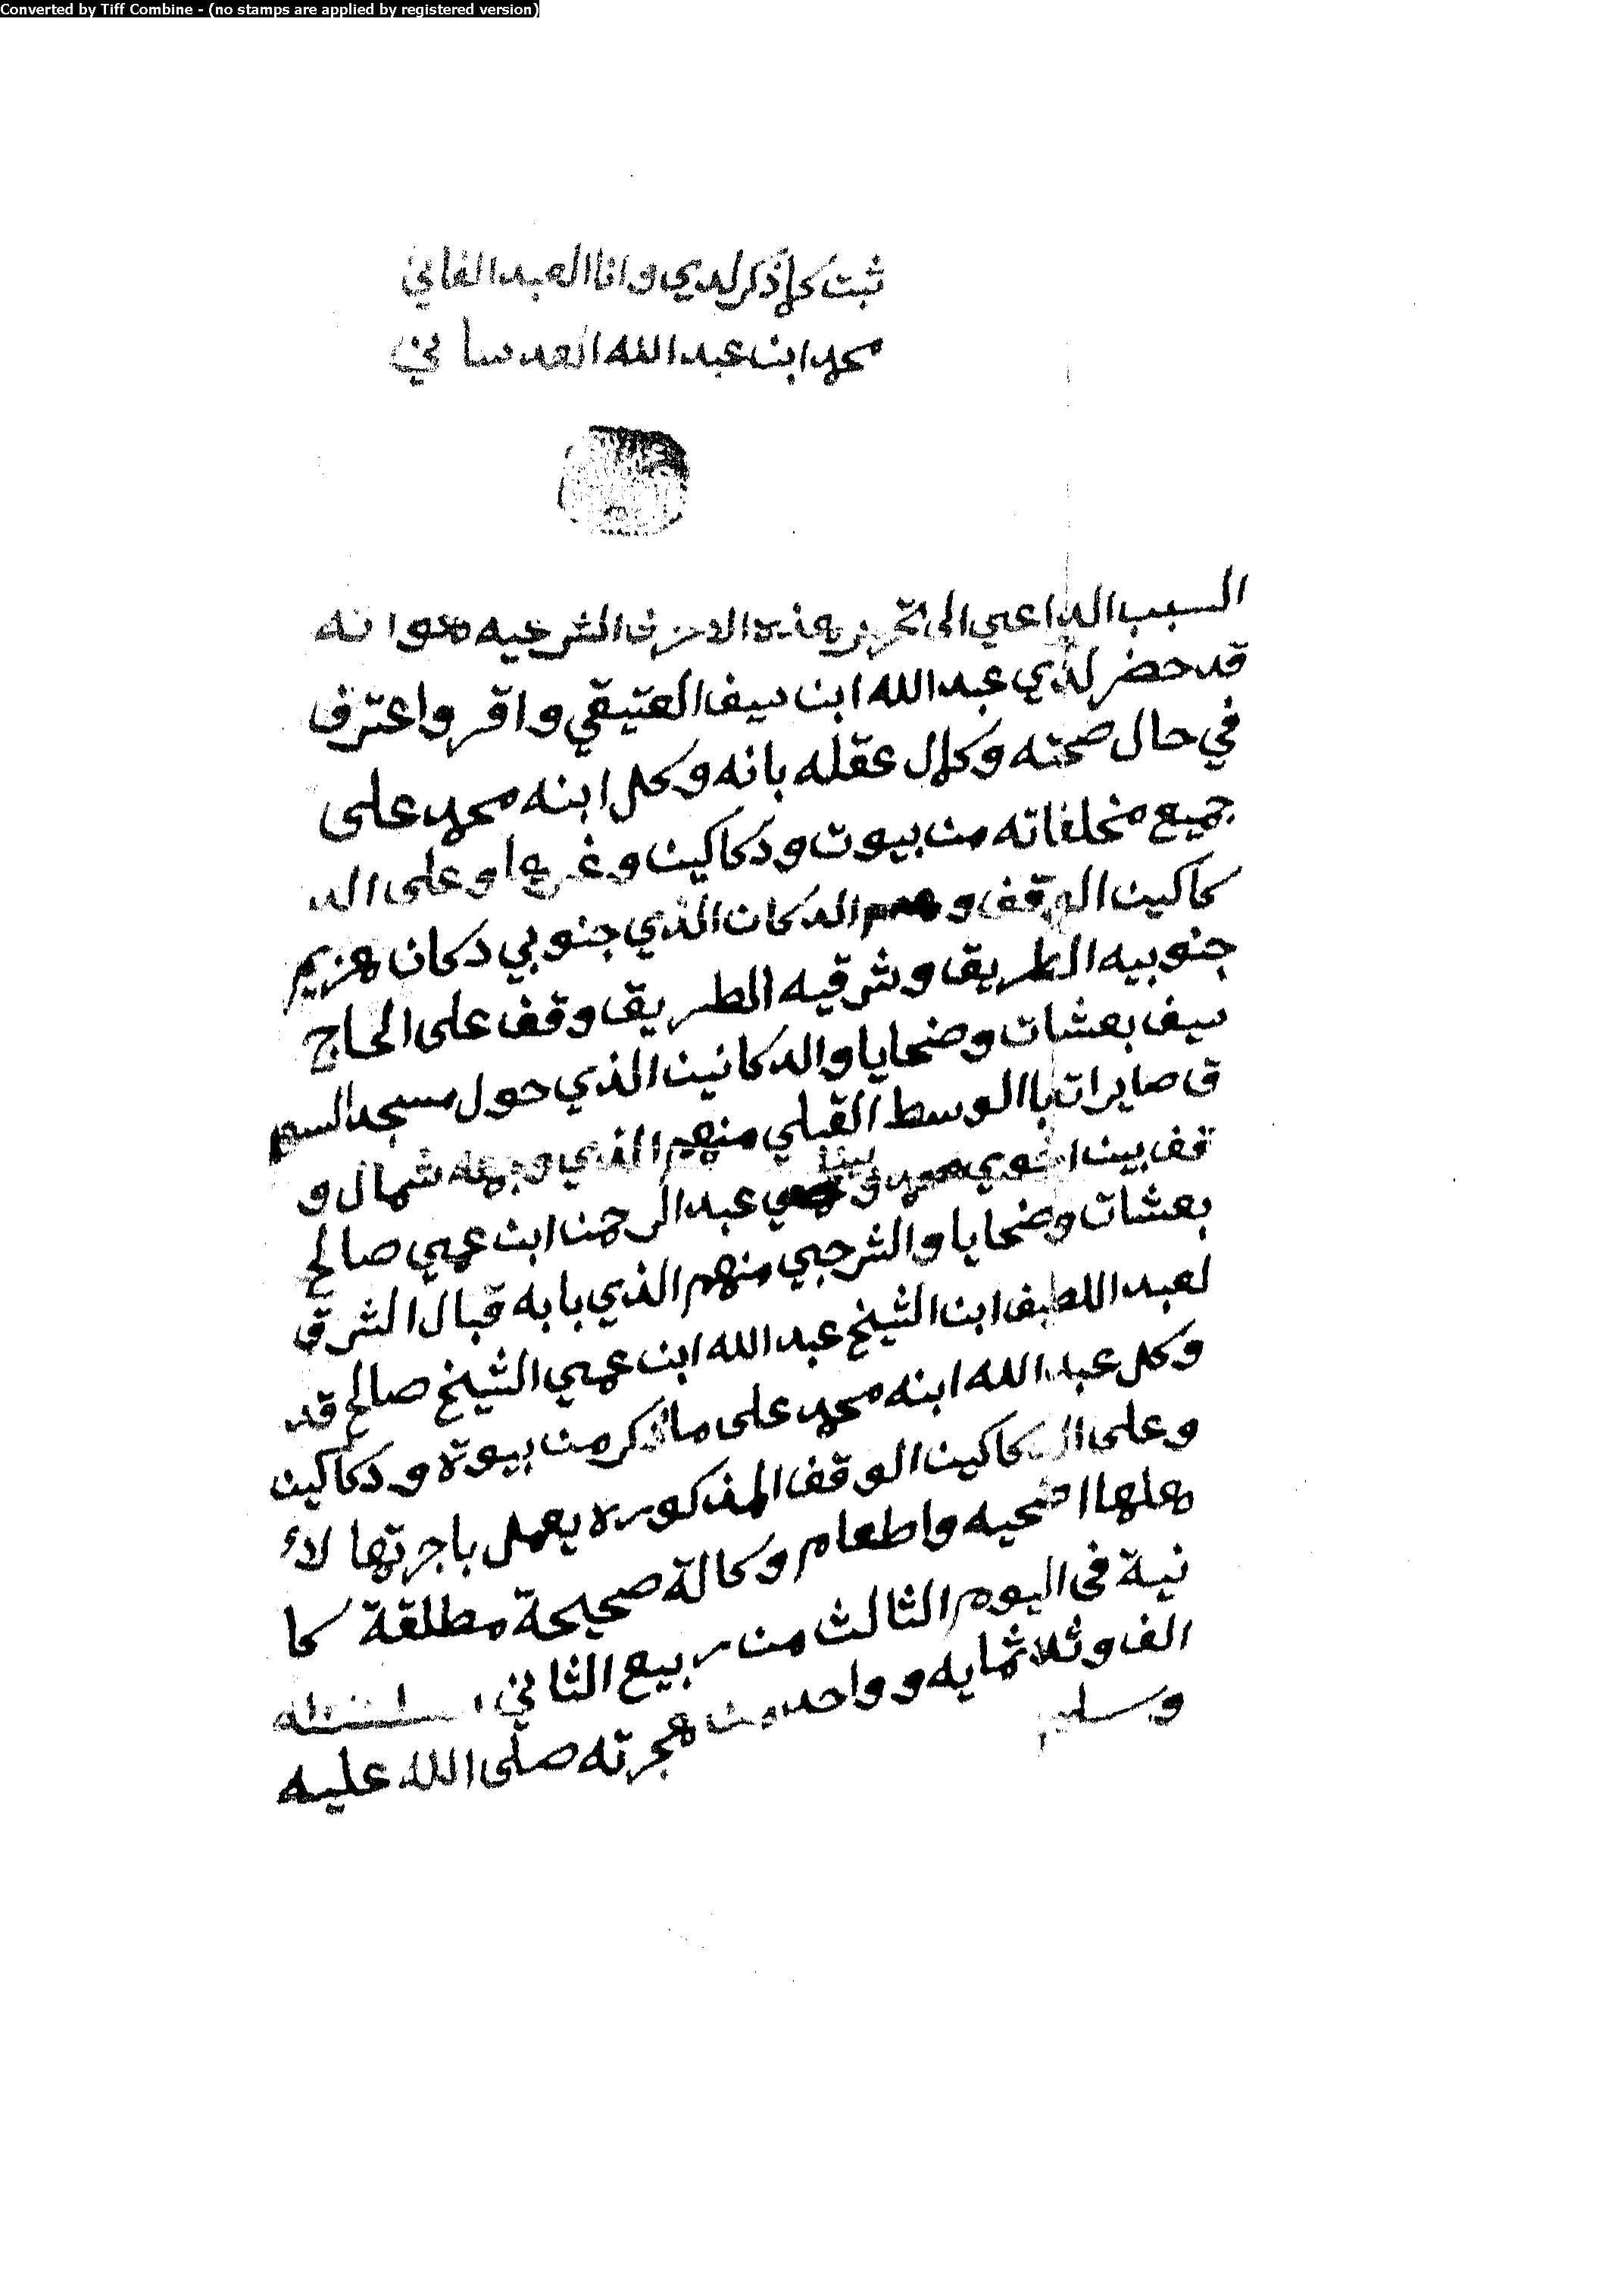 Converted by Tiff Combine - (no stamps are applied by registered version)
ثبت كلما ذكر لدي وانا العبد الفاني
محمد ابن عبد الله العدساني
السبب الداعي الى تحرير هذه الاحرف الشرعيه هوا نه
قد حضر لدي عبد الله ابن سيف العتيقي واقر واعترف
في حال صحته وكمال عقله بانه وكل ابنه محمد على
جميع مخلفاته من بيوت ودكاكين وغيرها وعلى الد
كاكين الوقف وهم الدكان الذي جنوبي دكان هزيم
جنوبيه الطريق وشرقيه الطريق وقف على الحاج
سيف بعشات وضحايا والدكانين الذي حول مسجد السو
ق صايرات باالوسط القبلي منهم الذي وجهه شمال و
قف بين اخوي محمد وبين عبد الرحمن ابن عمي صالح
بعشات وضحايا والشرجي منهم الذي بابه قبال الشرق
لعبد اللطيف ابن الشيخ عبد الله ابن عمي الشيخ صالح قد
وكل عبد الله ابنه محمد على ماذكر من بيوته ودكاكين
وعلى الدكاكين الوقف المذكوره يعمل باجرتها لاء
هلها اضحيه واطعام وكالة صحيحة مطلقة كا
نية فى اليوم الثالث من ربيع الثاني سنة
الف وثلاثمايه وواحد من هجرته صلى الله عليه
وسلم